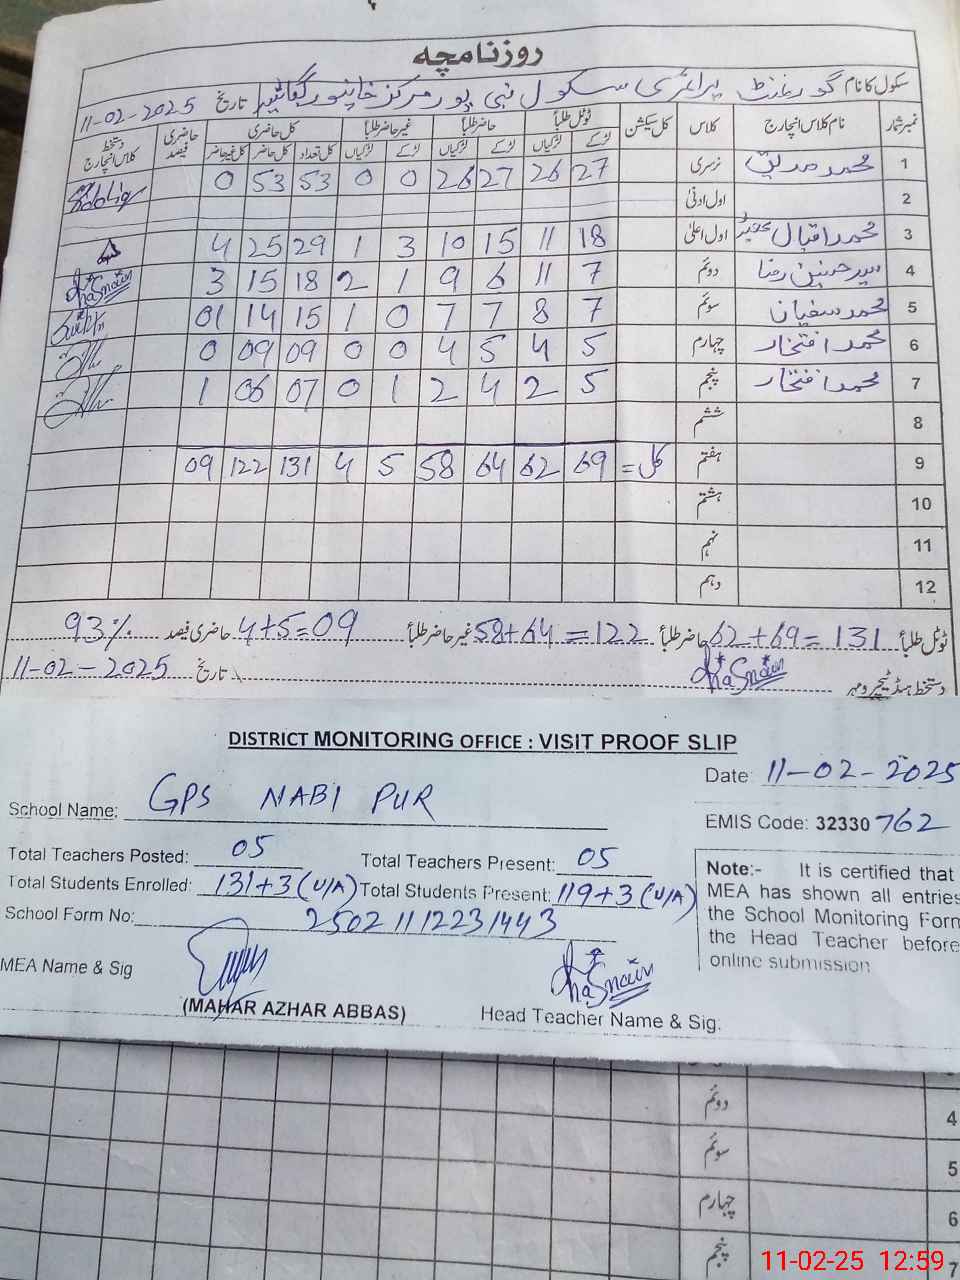 روزنامچہ
سکول کا نام گورنمنٹ پرائمری سکول نبی پور مرکز خانپور تاریخ 11-02-2025
نمبر شمار نام کلاس انچارج کلاس کل سیکشن ٹوٹل طلبأ حاضر طلبأ غیر حاضر طلبأ کل حاضری حاضری فیصد دستخط کلاس انچارج
لڑکے لڑکیاں لڑکے لڑکیاں لڑکے لڑکیاں کل تعداد کل حاضر کل غیر حاضر
1 محمد صدیق نرسری 27 26 27 26 0 0 53 53 0
2 اول ادنیٰ
3 محمد اقبال اول اعلیٰ 18 11 15 10 3 1 29 25 4
4 سید حسنین رضا دوئم 7 11 6 9 1 2 18 15 3 Hasnain
5 محمد سفیان سوئم 7 8 7 7 0 1 15 14 01
6 محمد افتخار چہارم 5 4 5 4 0 0 09 09 0
7 محمد افتخار پنجم 5 2 4 2 1 0 07 06 1
8 ششم
9 ہفتم کل = 69 62 64 58 5 4 131 122 09
10 ہشتم
11 نہم
12 دہم
ٹوٹل طلبأ 62+69=131 حاضر طلبأ 58+64=122 غیر حاضر طلبأ 4+5=09 حاضری فیصد 93%
دستخط ہیڈ ٹیچر و مہر Hasnain تاریخ 11-02-2025
DISTRICT MONITORING OFFICE : VISIT PROOF SLIP
Date: 11-02-2025
School Name: GPS NABI PUR
EMIS Code: 32330762
Total Teachers Posted: 05 Total Teachers Present: 05
Total Students Enrolled: 131+3(U/A) Total Students Present: 119+3(U/A)
School Form No: 25021112231443
Note:- It is certified that
MEA has shown all entries
the School Monitoring Form
the Head Teacher before
online submission
MEA Name & Sig
(MAHAR AZHAR ABBAS)
Hasnain
Head Teacher Name & Sig:
دوئم 4
سوئم 5
چہارم 6
پنجم 7
11-02-25 12:59